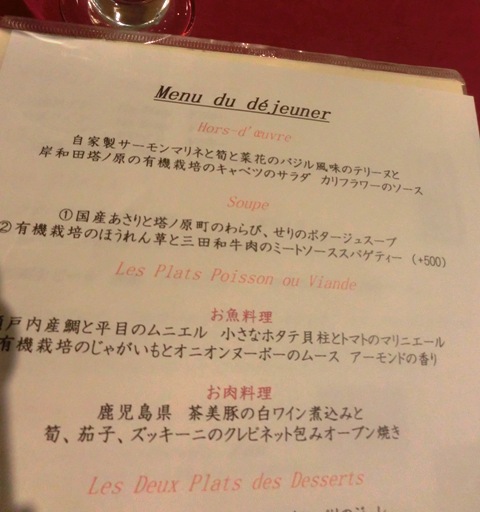 Menu du déjeuner
Hors-d'œuvre
自家製サーモンマリネと筍と菜花のバジル風味のテリーヌと
岸和田塔ノ原の有機栽培のキャベツのサラダ カリフラワーのソース
Soupe
①国産あさりと塔ノ原町のわらび、せりのポタージュスープ
②有機栽培のほうれん草と三田和牛肉のミートソーススパゲティー (+500)
Les Plats Poisson ou Viande
お魚料理
戸内産鯛と平目のムニエル 小さなホタテ貝柱とトマトのマリニエール
有機栽培のじゃがいもとオニオンヌーボーのムース アーモンドの香り
お肉料理
鹿児島県 茶美豚の白ワイン煮込みと
筍、茄子、ズッキーニのクレピネット包みオーブン焼き
Les Deux Plats des Desserts